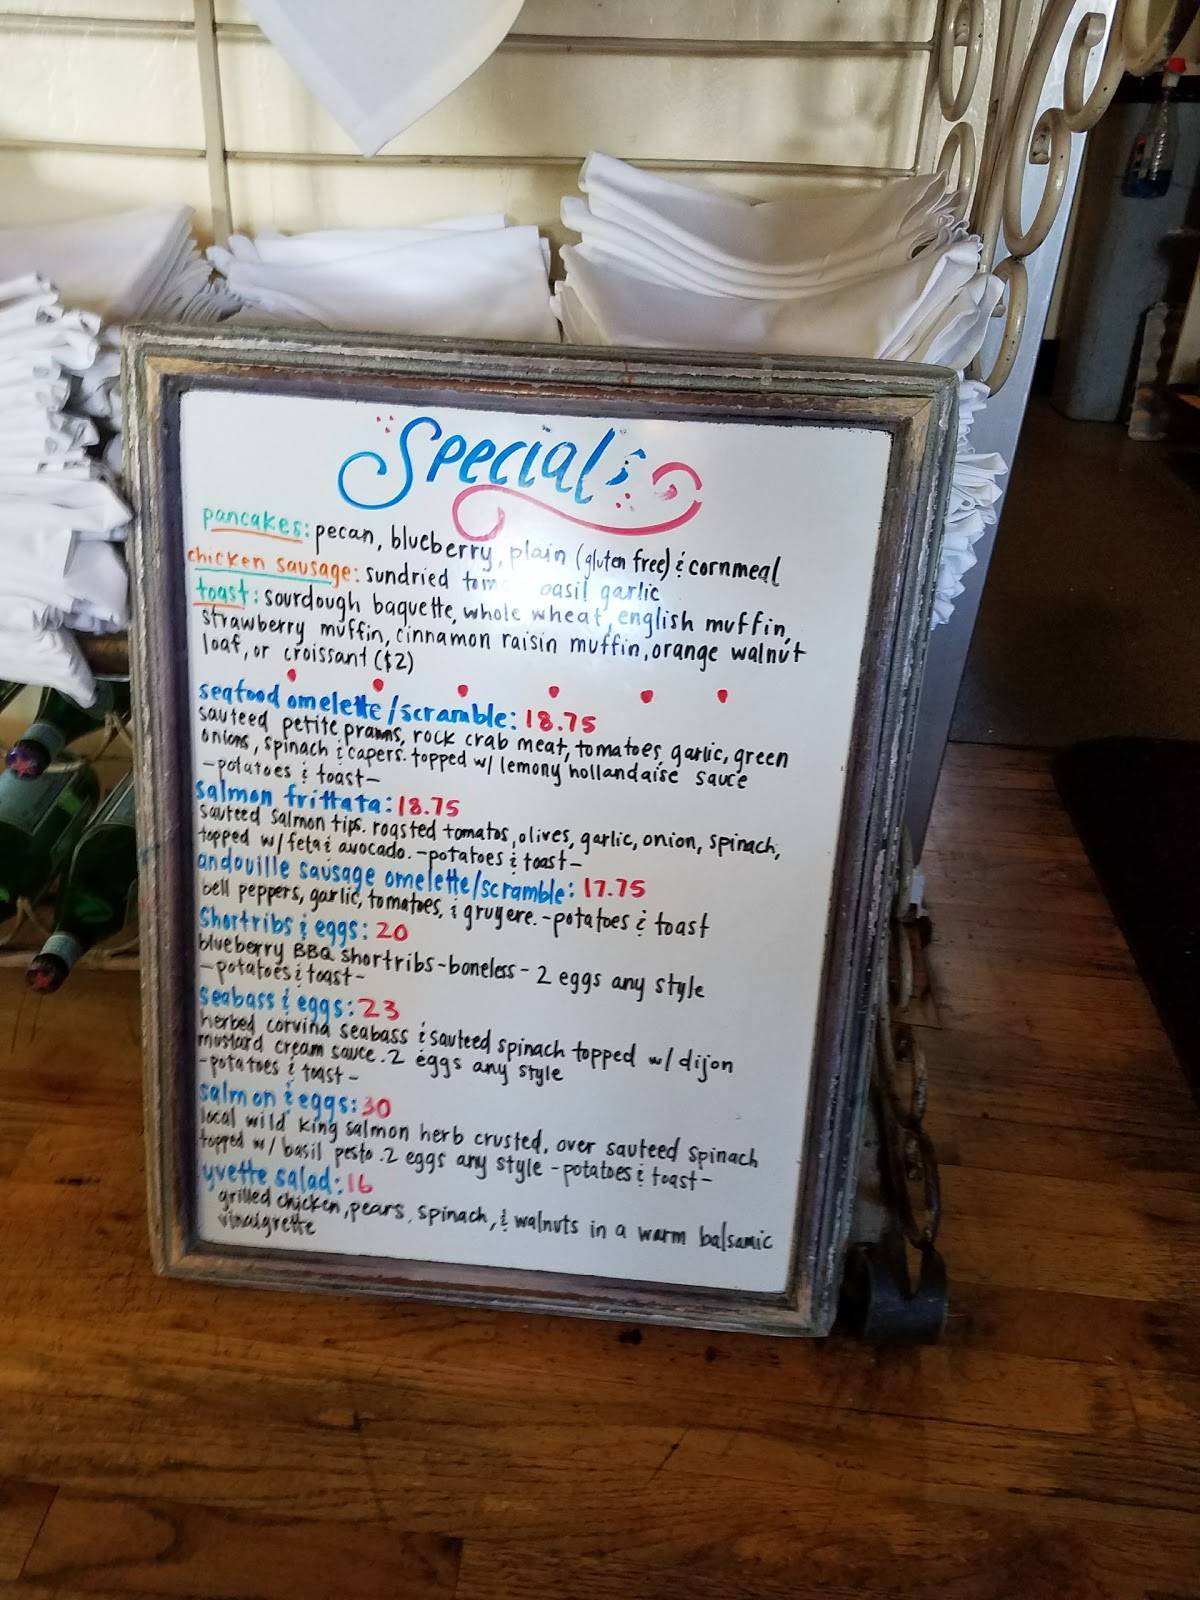 Specials
pancakes: pecan, blueberry, plain (gluten free) & cornmeal
chicken sausage: sundried basil garlic
toast: sourdough baguette, whole wheat, english muffin,
strawberry muffin, cinnamon raisin muffin, orange walnut
loaf, or croissant ($2)
seafood omelette/scramble: 18.75
sauteed petite prawns, rock crab meat, tomatoes, garlic, green
onions, spinach & capers. topped w/ lemony hollandaise sauce
-potatoes & toast-
salmon frittata: 18.75
sauteed salmon tips. roasted tomatos, olives, garlic, onion, spinach,
topped w/ feta & avocado. -potatoes & toast-
andouille sausage omelette/scramble: 17.75
bell peppers, garlic, tomatoes, & gruyere. -potatoes & toast
Shortribs & eggs: 20
blueberry BBQ shortribs -boneless- 2 eggs any style
-potatoes & toast-
seabass & eggs: 23
herbed corvina seabass & sauteed spinach topped w/ dijon
mustard cream sauce. 2 eggs any style
-potatoes & toast-
salmon & eggs: 30
local wild king salmon herb crusted, over sauteed spinach
topped w/ basil pesto. 2 eggs any style -potatoes & toast-
yvette salad: 16
grilled chicken, pears, spinach, & walnuts in a warm balsamic
vinaigrette